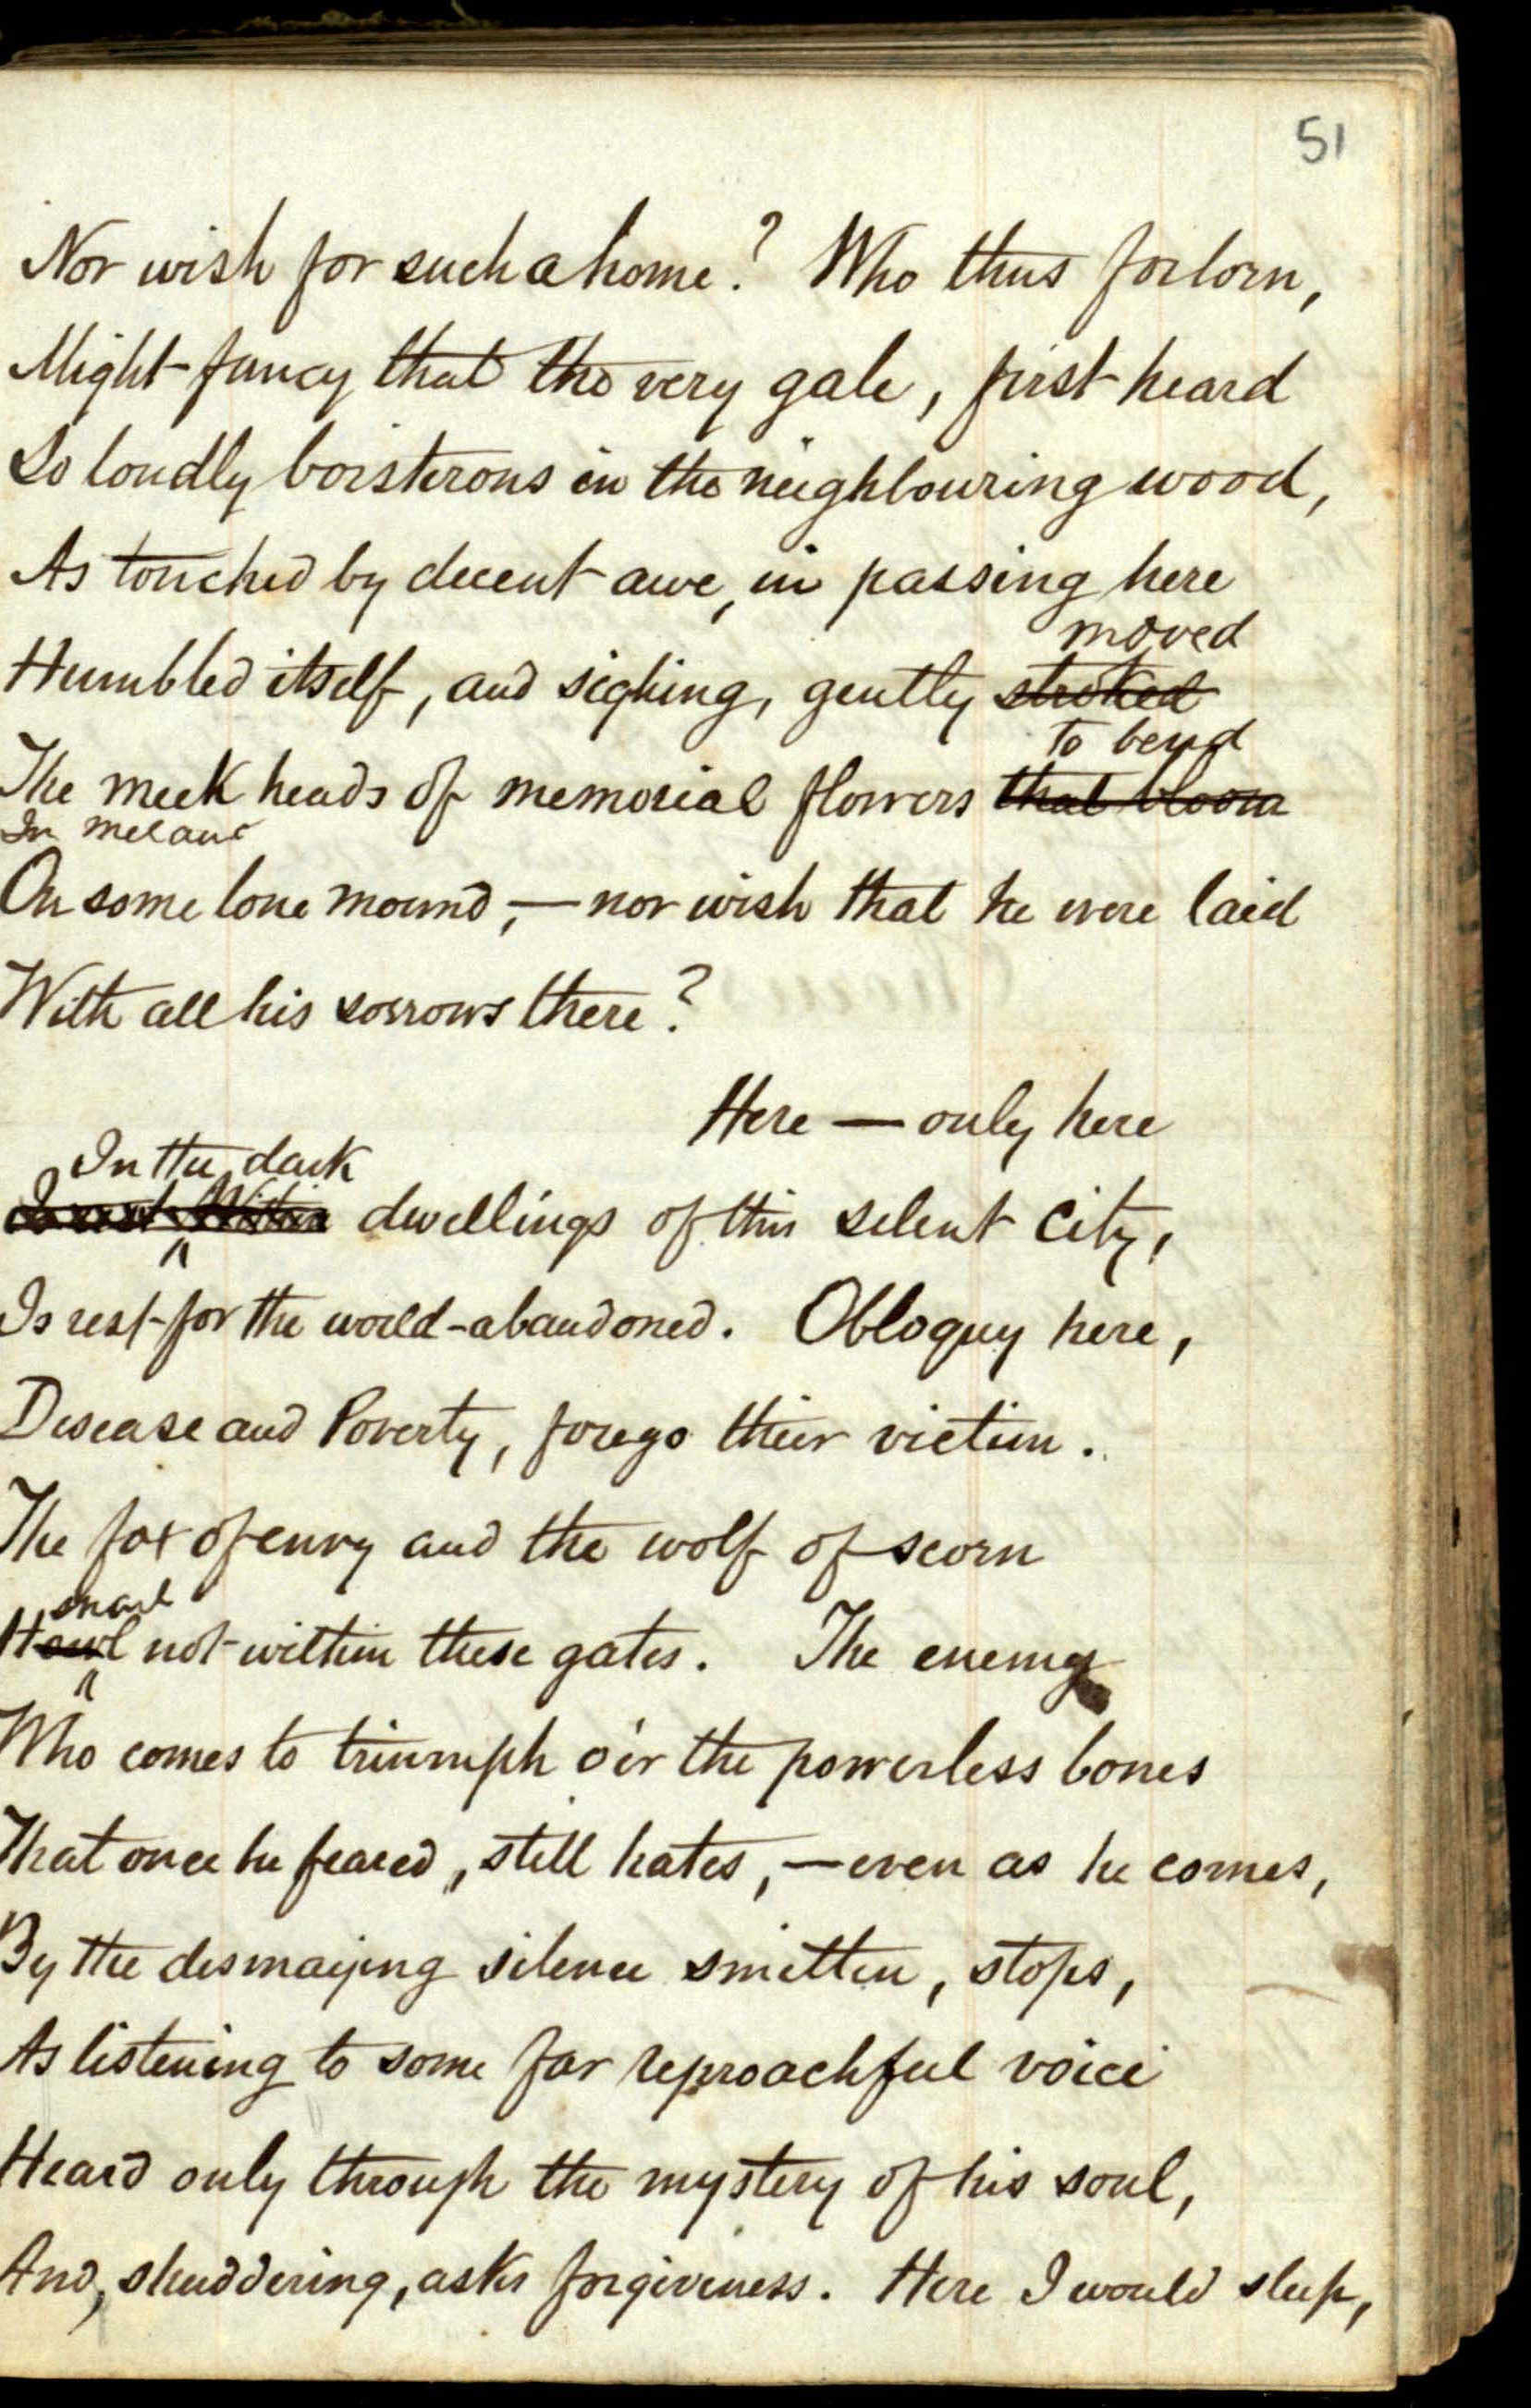 51
Nor wish for such a home? Who thus forlorn,
Might fancy that the very gale, first heard
So loudly boisterous in the neighbouring wood,
As touched by decent awe, in passing here
moved
Humbled itself, and sighing, gently stroked
to bend
The meek heads of memorial flowers that bloom
In melanc
On some lone mound, — nor wish that he were laid
With all his sorrows there?
Here — only here
In the dark
Within dwellings of this silent city,
Is rest for the world-abandoned. Obloquy here,
Disease and Poverty, forego their victim.
The fox of envy and the wolf of scorn
snarl
Howl not within these gates. The enemy
Who comes to triumph o'er the powerless bones
That once he feared, still hates, — even as he comes,
By the dismaying silence smitten, stops,
As listening to some far reproachful voice
Heard only through the mystery of his soul,
And, shuddering, asks forgiveness. Here I would sleep,